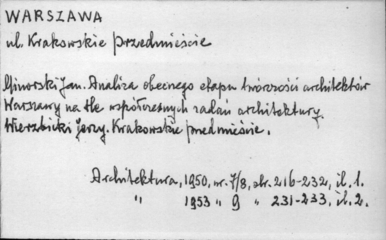 WARSZAWA
ul. Krakowskie przedmieście
Jan. Analiza obecnego etapu twórczości architektów
Warszawy na tle współczesnych zadań architektury.
Wierzbicki Jerzy. Krakowskie przedmieście.
Architektura, 1950, nr. 7/8, str. 216-232, il. 1.
" 1953 " 9 " 231-233, il. 2.